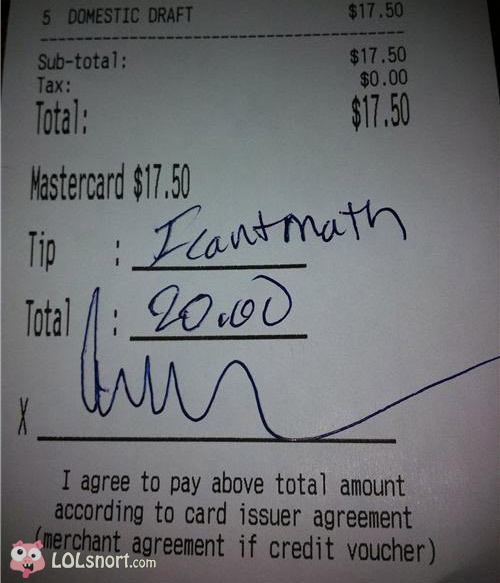 5 DOMESTIC DRAFT $17.50
Sub-total: $17.50
Tax: $0.00
Total: $17.50
Mastercard $17.50
Tip : I cant math
Total : 20.00
X
I agree to pay above total amount
according to card issuer agreement
(merchant agreement if credit voucher)
LOLsnort.com